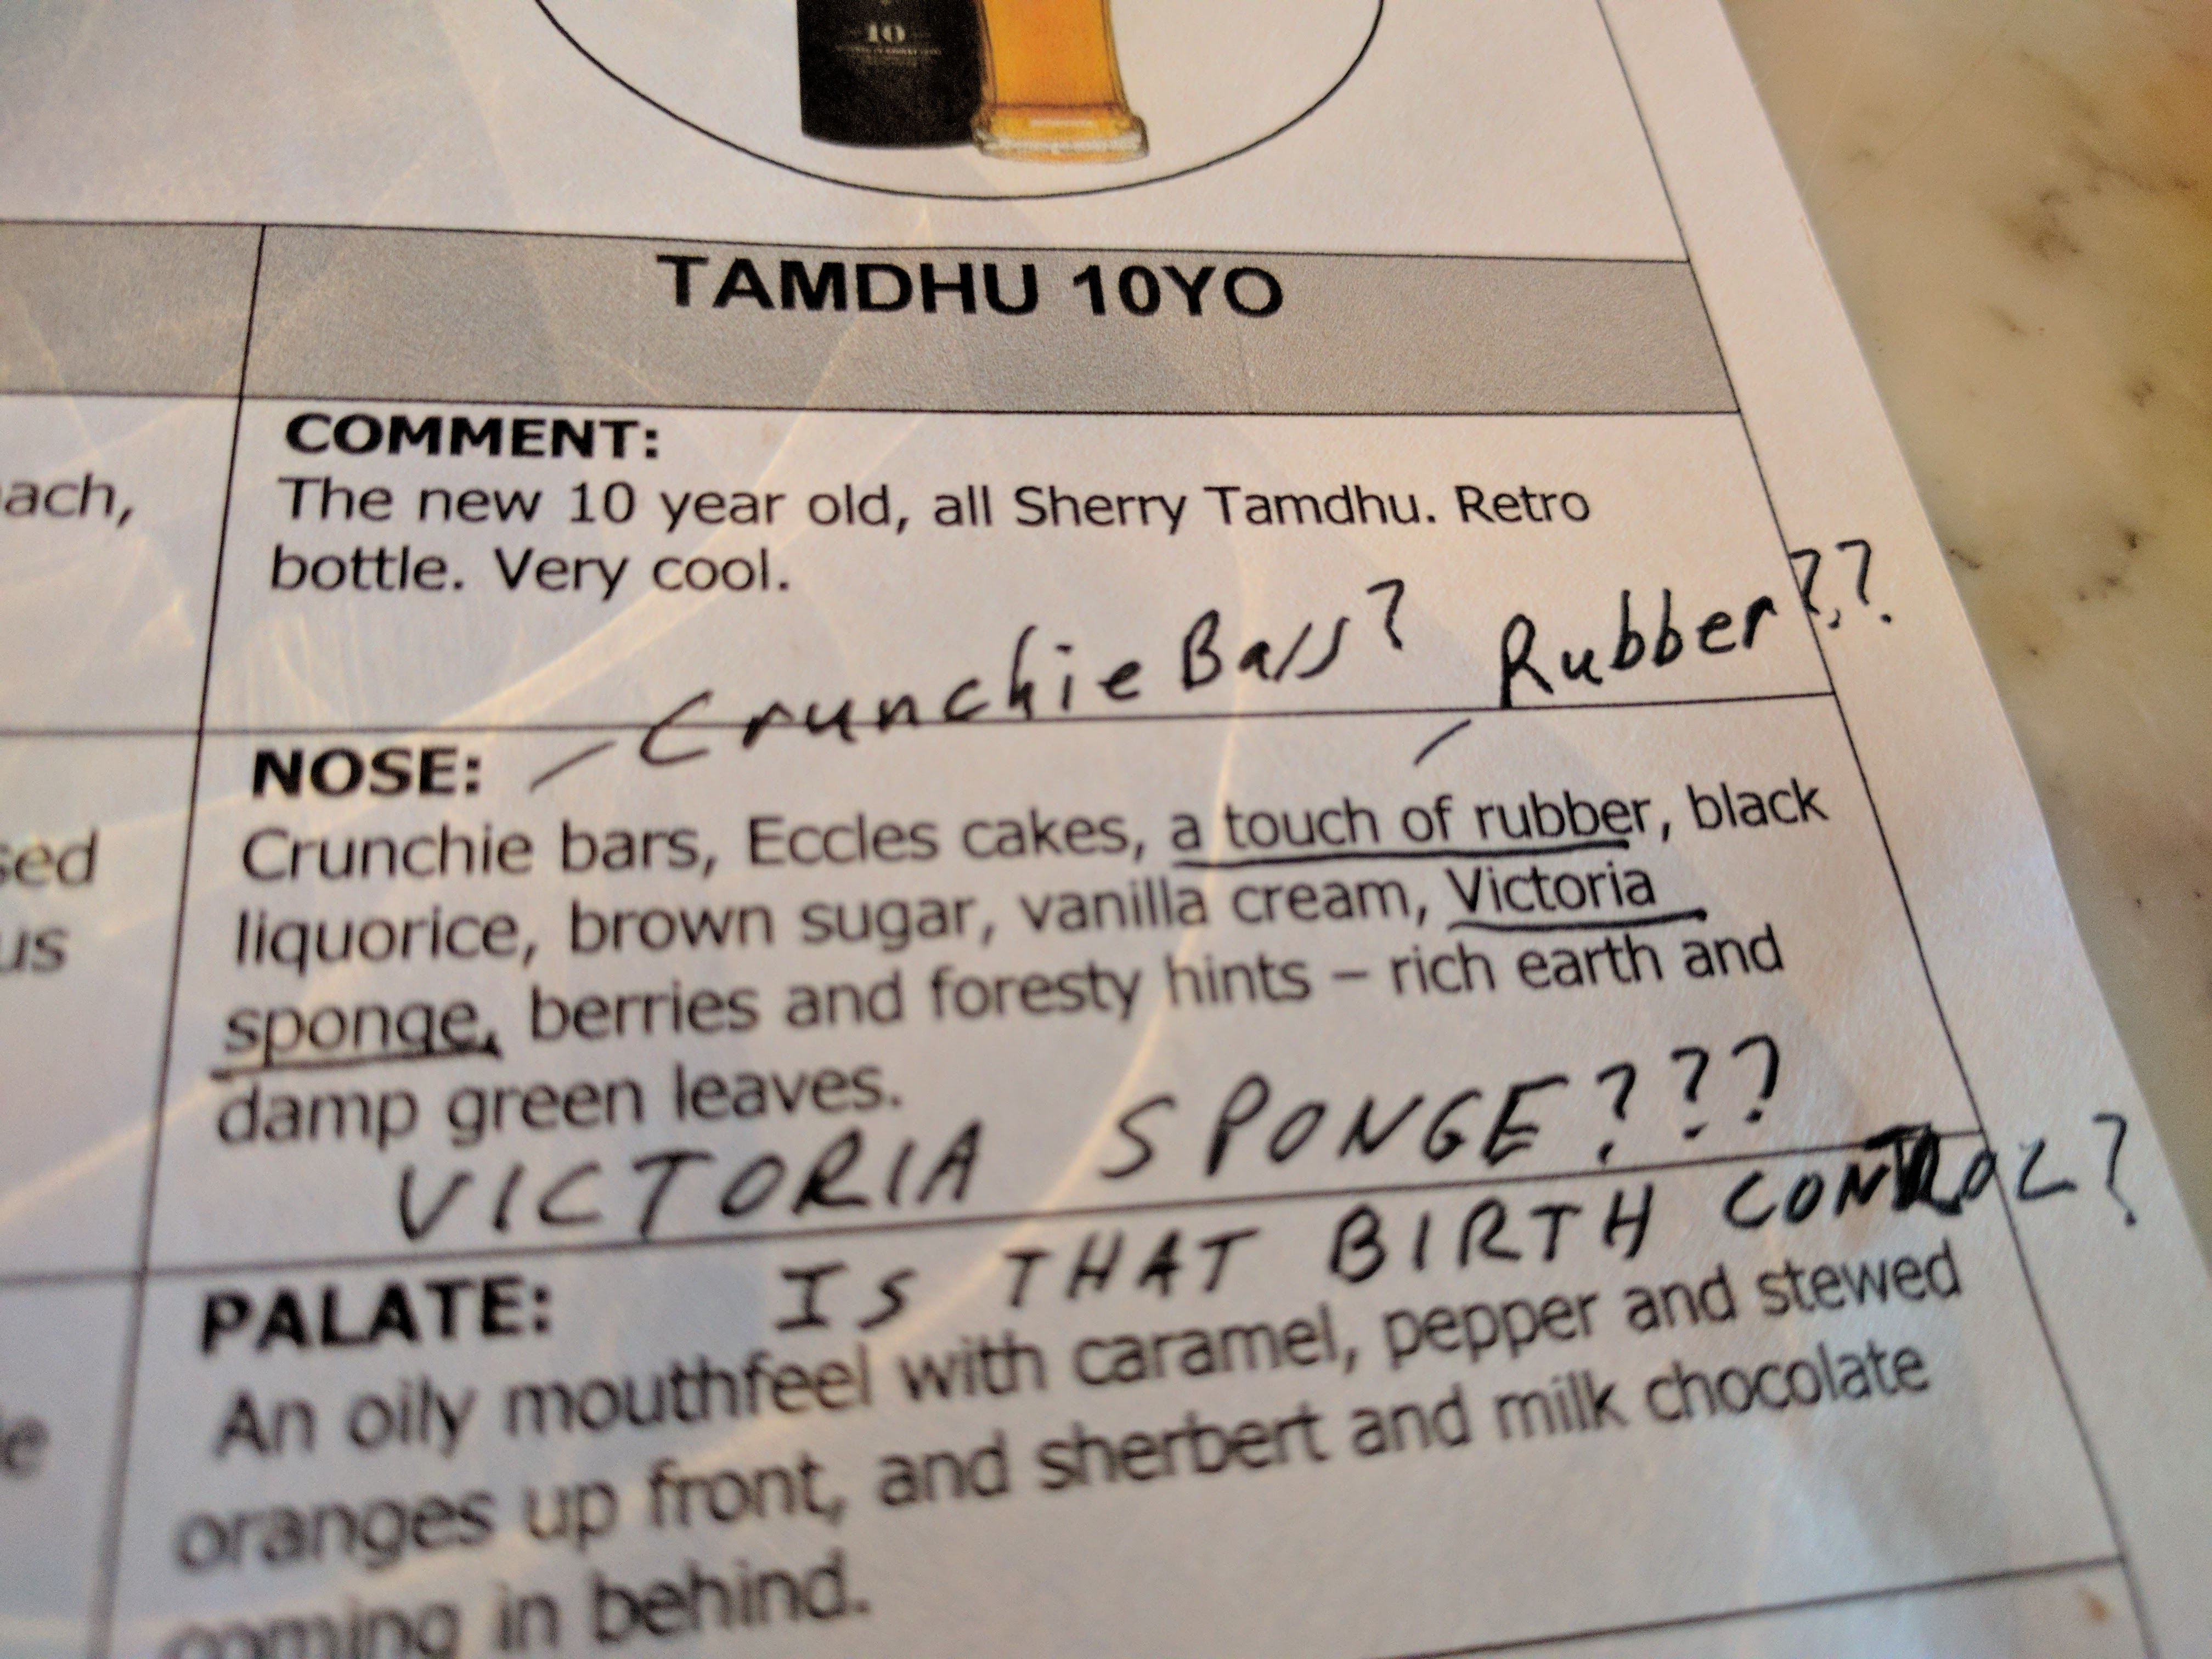 10
TAMDHU 10YO
COMMENT:
The new 10 year old, all Sherry Tamdhu. Retro
bottle. Very cool.
Crunchie Bars?
Rubber??
NOSE:
Crunchie bars, Eccles cakes, a touch of rubber, black
liquorice, brown sugar, vanilla cream, Victoria
sponge, berries and foresty hints – rich earth and
damp green leaves.
VICTORIA SPONGE???
IS THAT BIRTH CONTROL?
PALATE:
An oily mouthfeel with caramel, pepper and stewed
oranges up front, and sherbert and milk chocolate
coming in behind.
ach,
sed
us